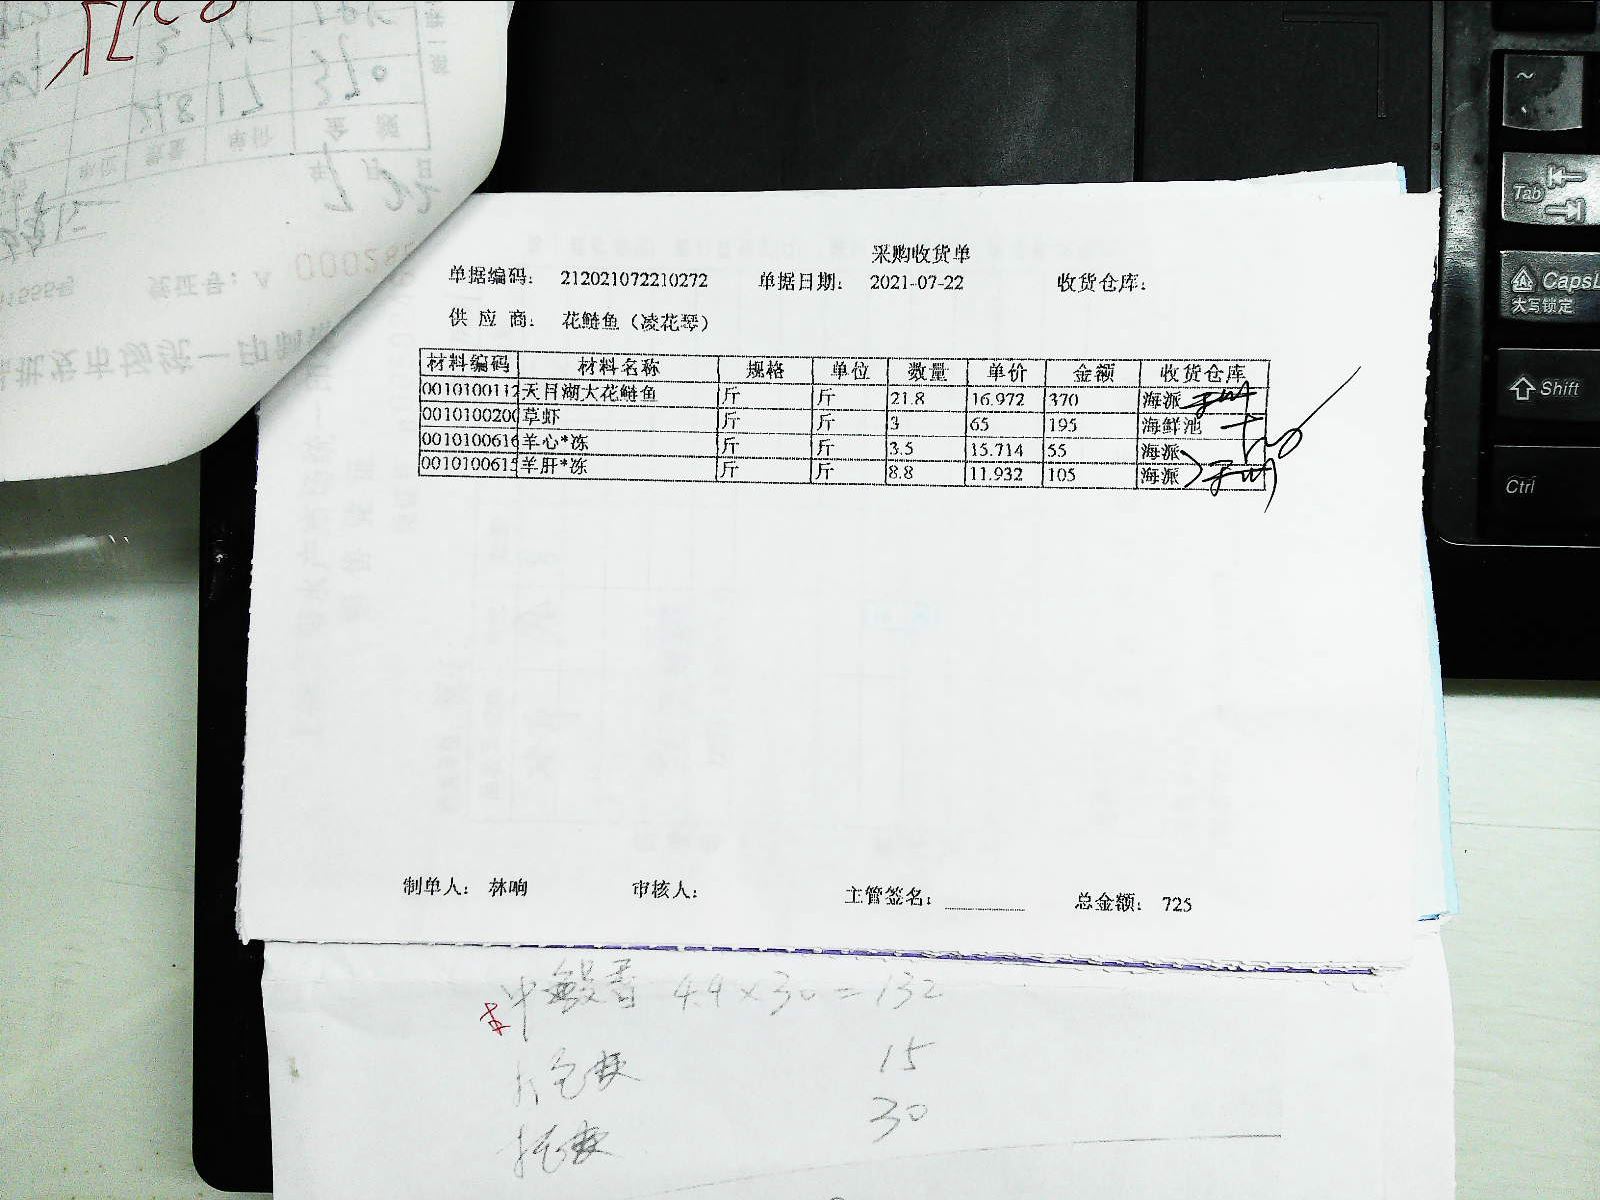 采购收货单
单据编码： 212021072210272 单据日期： 2021-07-22 收货仓库：
供 应 商： 花鲢鱼（凌花琴）
材料编码 材料名称 规格 单位 数量 单价 金额 收货仓库
0010100112 天目湖大花鲢鱼 斤 斤 21.8 16.972 370 海派
0010100200 草虾 斤 斤 3 65 195 海鲜池
0010100616 羊心*冻 斤 斤 3.5 15.714 55 海派
0010100615 羊肝*冻 斤 斤 8.8 11.932 105 海派
制单人： 林响 审核人： 主管签名： 总金额： 725
4.4×30=132
15
30
~
Tab
CapsL
大写锁定
Shift
Ctrl